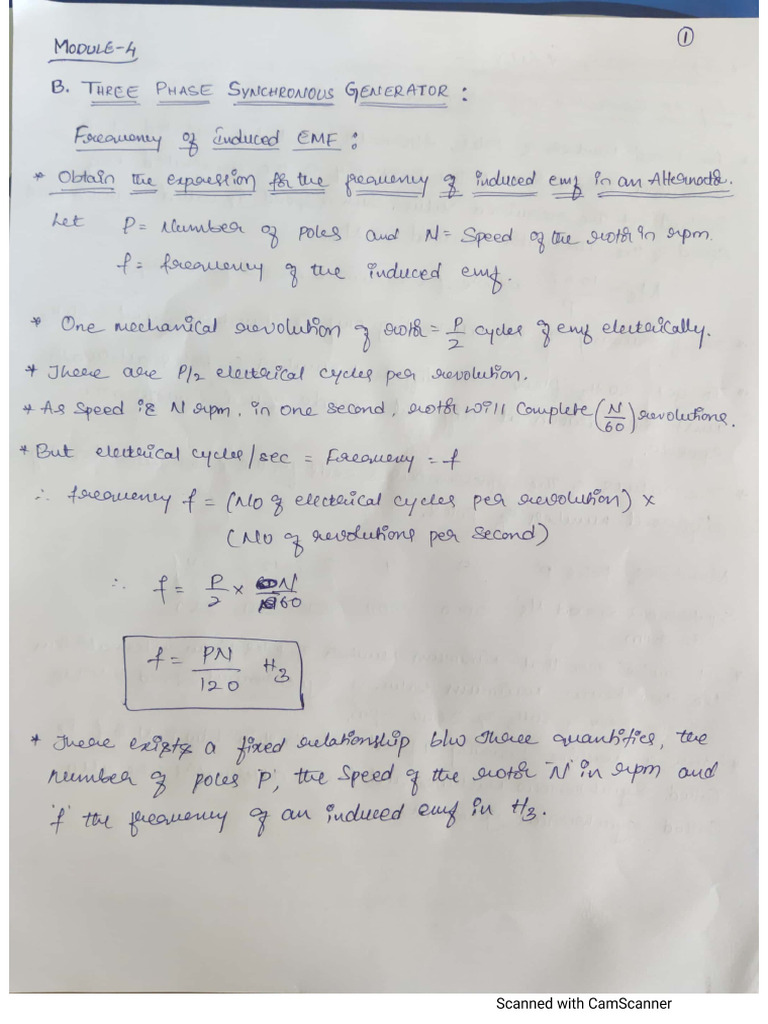 1
MODULE-4
B. THREE PHASE SYNCHRONOUS GENERATOR :
Frequency of induced EMF :
* Obtain the expression for the frequency of induced emf in an Alternator.
Let P = Number of poles and N = Speed of the rotor in rpm.
f = frequency of the induced emf.
* One mechanical revolution of rotor = P/2 cycles of emf electrically.
* There are P/2 electrical cycles per revolution.
* As Speed is N rpm, in one second, rotor will Complete (N/60) revolutions.
* But electrical cycles/sec = Frequency = f
∴ frequency f = (No of electrical cycles per revolution) ×
(No of revolutions per Second)
∴ f = P/2 × N/60
f = PN/120 Hz
* There exists a fixed relationship b/w three quantities, the
number of poles 'P', the Speed of the rotor 'N' in rpm and
'f' the frequency of an induced emf in Hz.
Scanned with CamScanner